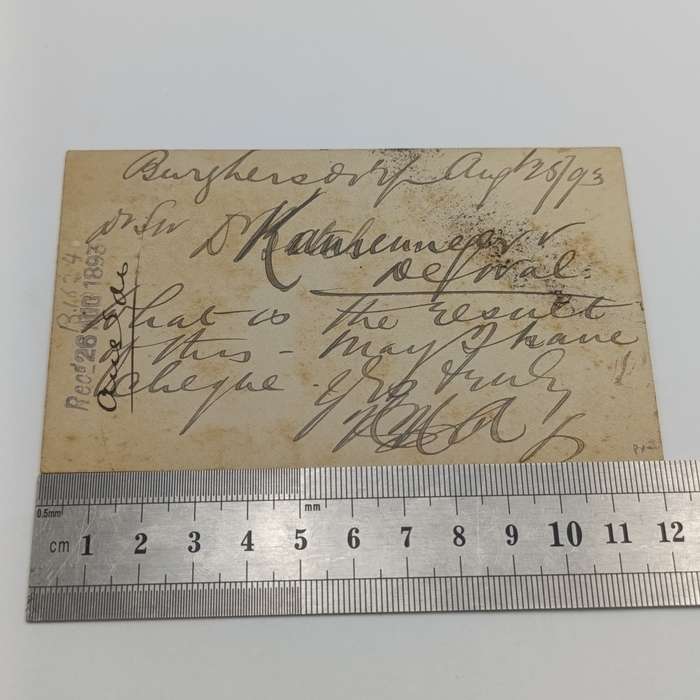 Burghersdorp Aug 25/93
D Sir
De Waal
What is the result
of this - May I have
cheque. Yrs truly
Recd 26 AUG 1893
B/634
0.5mm
mm
cm 1 2 3 4 5 6 7 8 9 10 11 12